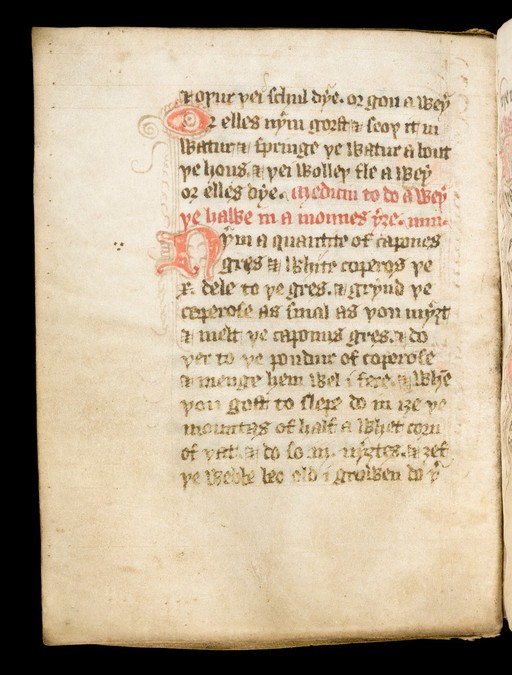 ⁊ oþur þei schul dye. or gon a wey
Or elles nym gorst ⁊ seoþ it in
watur ⁊ springe þe watur a bout
þe hous. ⁊ þei wolleþ fle a wey
or elles dye. medicin to do a wey
þe hawe in a monnes yȝe.
Nym a quantite of capones
gres ⁊ white coperos þe
x. dele to þe gres. ⁊ grynd þe
coperose as smal as þou myȝt
⁊ melt þe caponus gres. ⁊ do
þer to þe poudur of coperose
⁊ menge hem wel i fere. ⁊ whē
þou gost to slepe do in ȝe þe
mountas of half a whet corn
of þat. ⁊ do so nyȝtes. ⁊ ȝef
þe webbe beo old i growen do þ